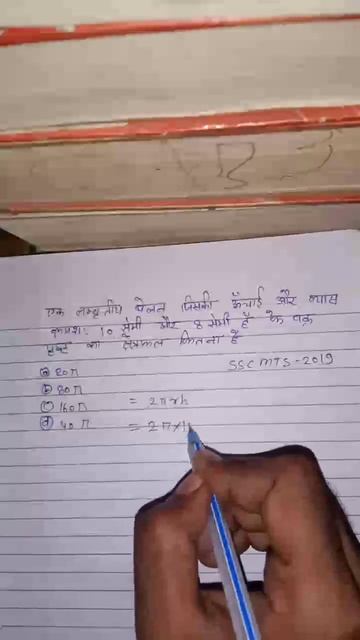 एक लम्बवृतीय बेलन जिसकी ऊँचाई और व्यास
क्रमशः 10 सेमी और 8 सेमी है के वक्र
पृष्ठ का क्षेत्रफल कितना है
SSC MTS-2019
(a) 20π
(b) 80π
(c) 160π = 2πrh
(d) 40π = 2π×